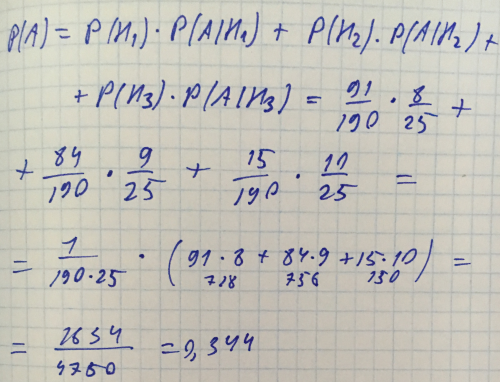 P(A) = P(H₁) · P(A|H₁) + P(H₂) · P(A|H₂) +
+ P(H₃) · P(A|H₃) = 91/190 · 8/25 +
+ 84/190 · 9/25 + 15/190 · 10/25 =
= 1/(190·25) · (91·8 + 84·9 + 15·10) =
728 756 150
= 1634/4750 = 0,344